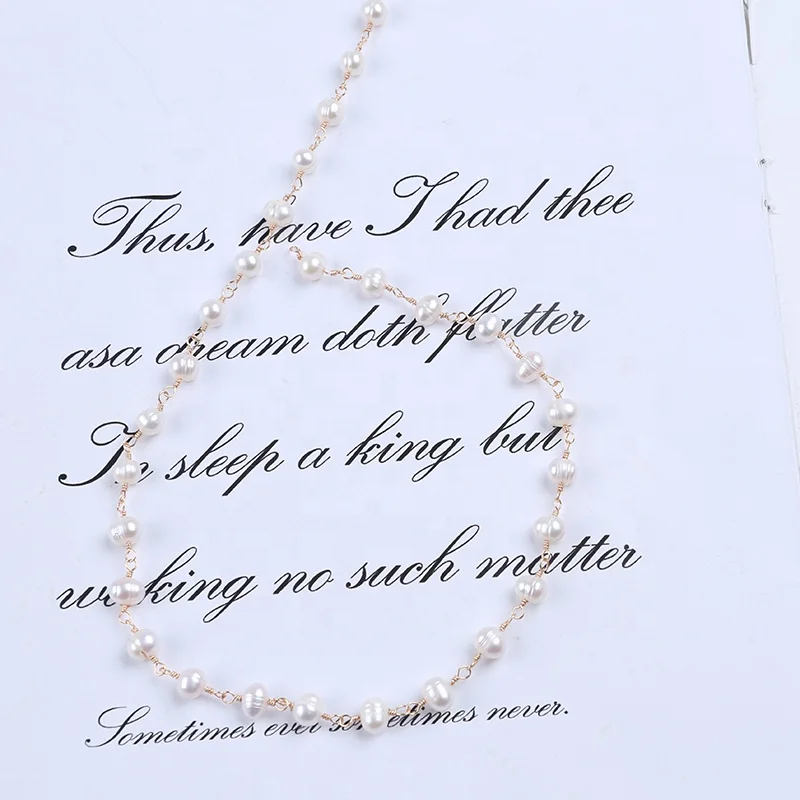 Thus, have I had thee
asa dream doth flatter
In sleep a king but
waking no such matter
Sometimes ever sometimes never.